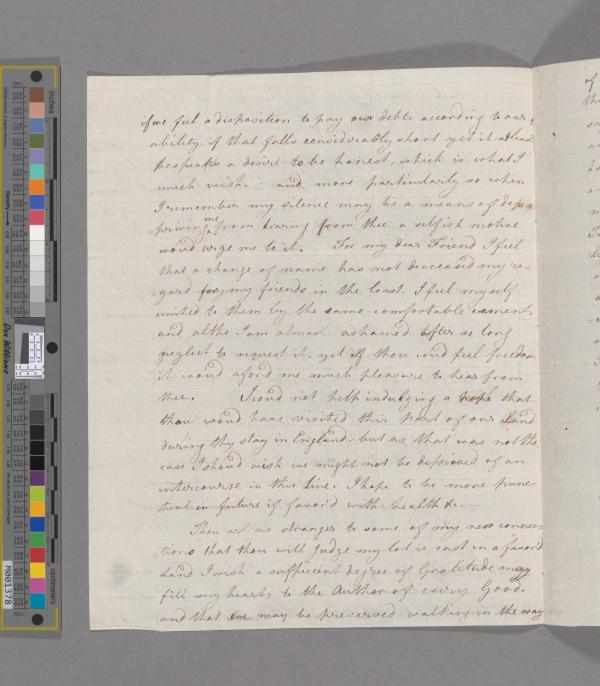 if we feel a disposition to pay our debts according to our
ability. if that falls considerably short yet it atleast
bespeaks a desire to be honest, which is what I
much wish. and more particularly so when
I remember my silence may be a means of de=
=priving me from hearing from thee a selfish motive
woud urge me to it. For my dear Friend I feel
that a change of name has not decreased my re=
=gard for my friends in the least. I feel myself
united to them by the same comfortable cement.
and altho I am almost ashamed after so long
neglect to request it, yet if thou coud feel freedom
it woud aford me much pleasure to hear from
thee. I coud not help indulging a hope that
thou woud have visited this part of our Land
during thy stay in England. but as that was not the
case I shoud wish we might not be deprived of an
intercourse in this line. I hope to be more punc=
=tual in future if favor'd with health &c.
Thou art no stranger to some of my new connec=
=tions that thou will Judge my lot is cast in a favor'd
land I wish a sufficient degree of Gratitude may
fill my heart, to the Author of every Good.
and that we may be preserved walking in the way
of
inches
centimeters
Density
Don Williams
M001378